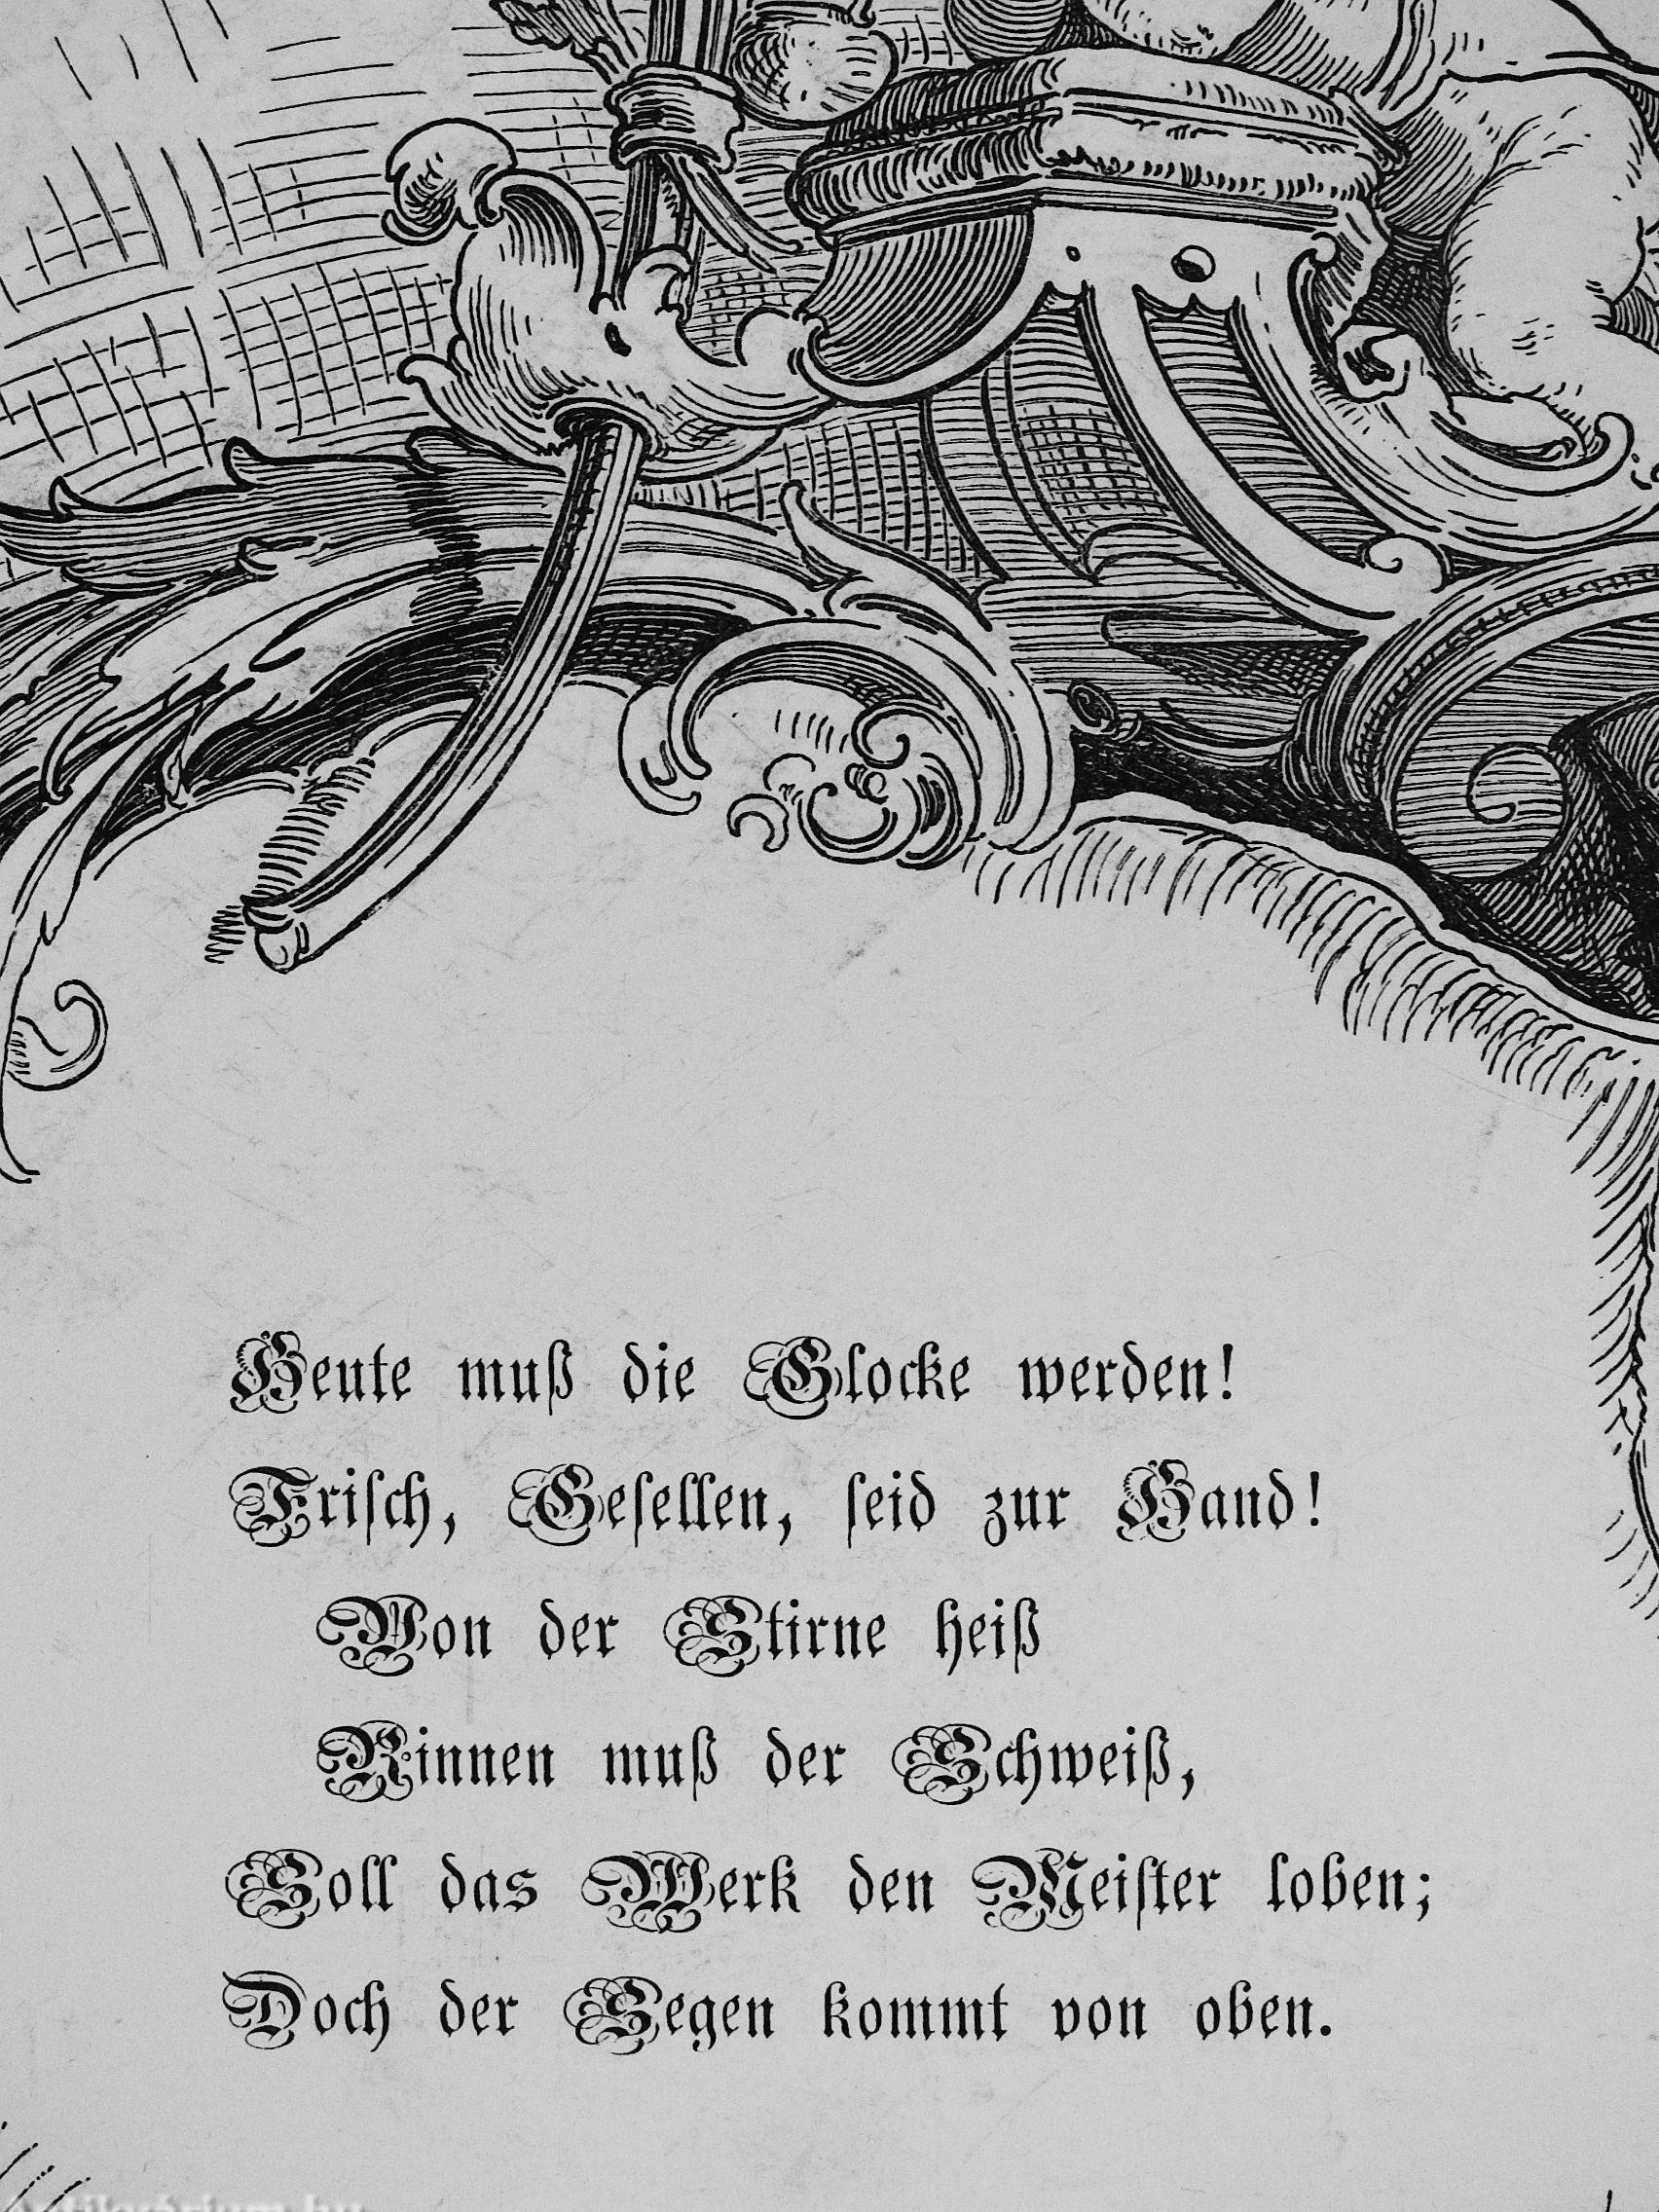 Heute muß die Glocke werden!
Friſch, Geſellen, ſeid zur Hand!
Von der Stirne heiß
Rinnen muß der Schweiß,
Soll das Werk den Meiſter loben;
Doch der Segen kommt von oben.